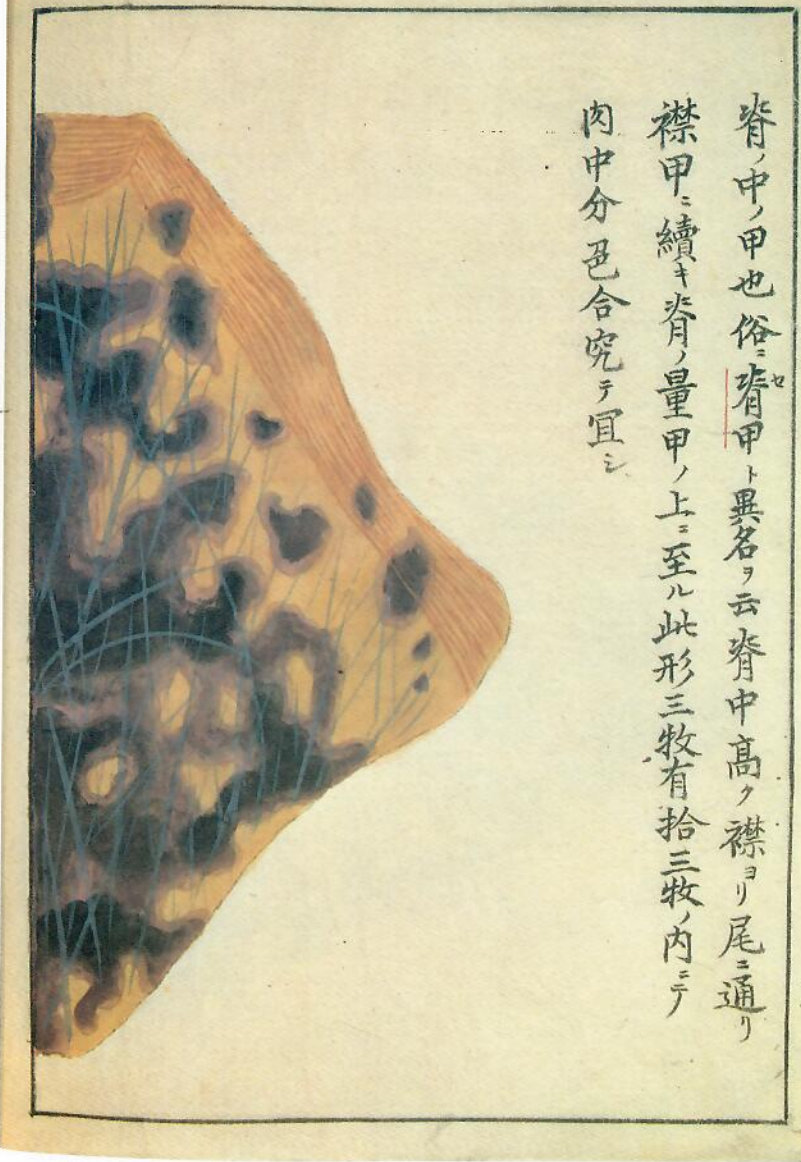 脊ノ中ノ甲也俗ニ脊セ甲ト異名ヲ云脊中高ク襟ヨリ尾ニ通リ
襟甲ニ續キ脊ノ量甲ノ上ニ至ル此形三牧有拾三牧ノ内ニテ
肉中分色合究テ冝シ